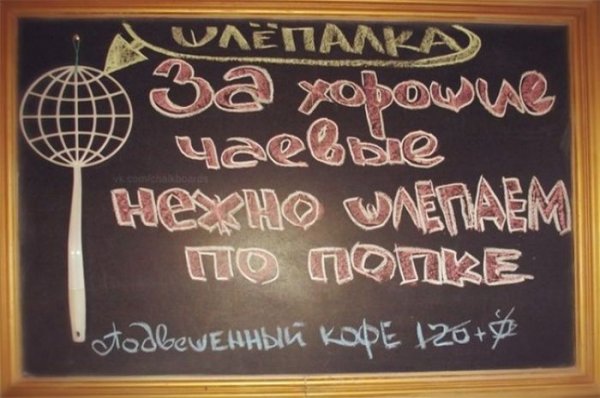 ШЛЁПАЛКА
За хорошие
чаевые
нежно шлепаем
по попке
vk.com/chalkboards
Подвешенный кофе 120+